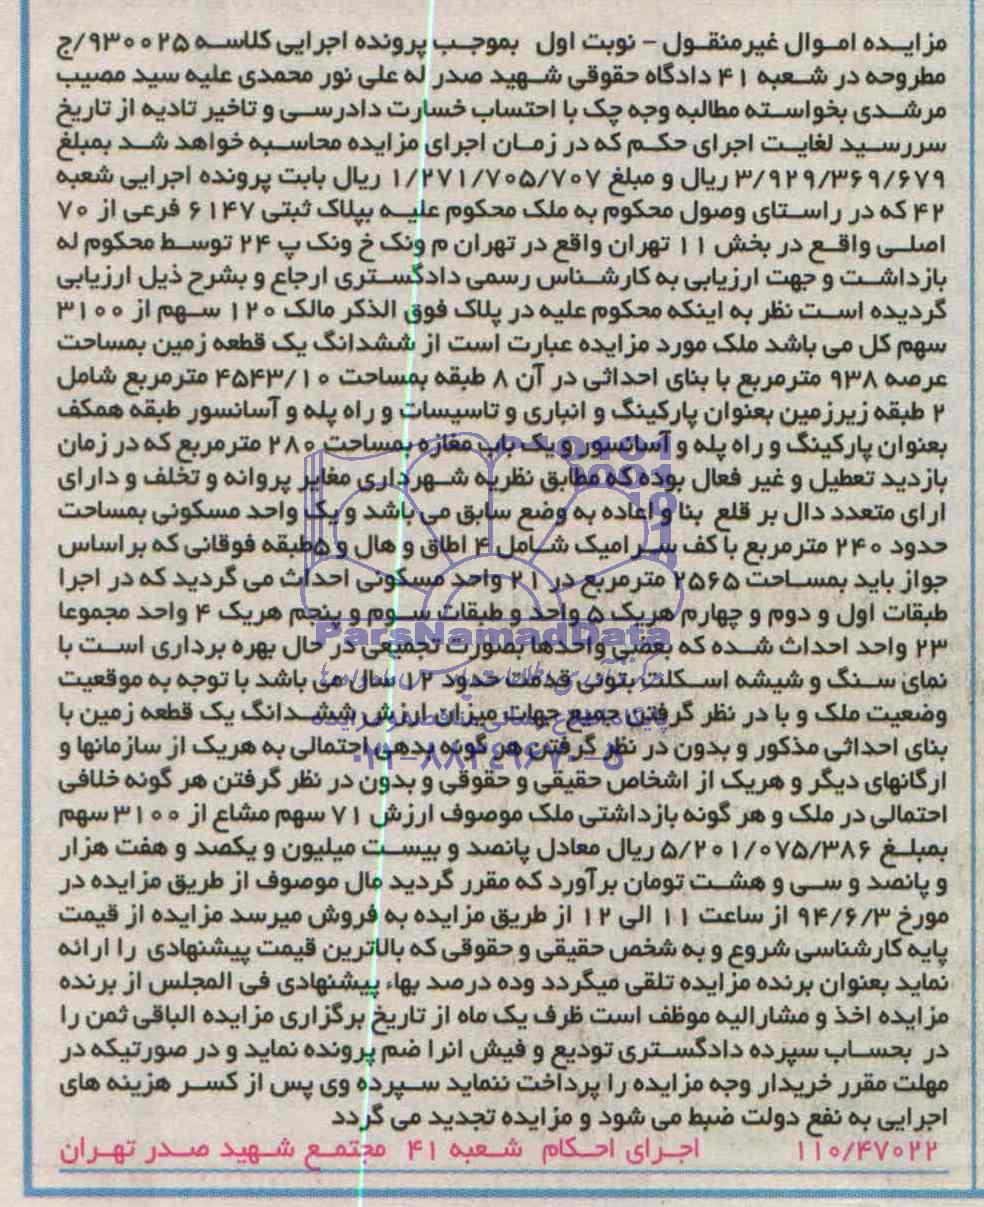 مزایده اموال غیرمنقول - نوبت اول بموجب پرونده اجرایی کلاسه ۹۳۰۰۲۵/ج
مطروحه در شعبه ۴۱ دادگاه حقوقی شهید صدر له علی نور محمدی علیه سید مصیب
مرشدی بخواسته مطالبه وجه چک با احتساب خسارت دادرسی و تاخیر تادیه از تاریخ
سررسید لغایت اجرای حکم که در زمان اجرای مزایده محاسبه خواهد شد بمبلغ
۳/۹۲۹/۳۶۹/۶۷۹ ریال و مبلغ ۱/۲۷۱/۷۰۵/۷۰۷ ریال بابت پرونده اجرایی شعبه
۴۲ که در راستای وصول محکوم به ملک محکوم علیه بپلاک ثبتی ۶۱۴۷ فرعی از ۷۰
اصلی واقع در بخش ۱۱ تهران واقع در تهران م ونک خ ونک پ ۲۴ توسط محکوم له
بازداشت و جهت ارزیابی به کارشناس رسمی دادگستری ارجاع و بشرح ذیل ارزیابی
گردیده است نظر به اینکه محکوم علیه در پلاک فوق الذکر مالک ۱۲۰ سهم از ۳۱۰۰
سهم کل می باشد ملک مورد مزایده عبارت است از ششدانگ یک قطعه زمین بمساحت
عرصه ۹۳۸ مترمربع با بنای احداثی در آن ۸ طبقه بمساحت ۴۵۴۳/۱۰ مترمربع شامل
۲ طبقه زیرزمین بعنوان پارکینگ و انباری و تاسیسات و راه پله و آسانسور طبقه همکف
بعنوان پارکینگ و راه پله و آسانسور و یک باب مغازه بمساحت ۲۸۰ مترمربع که در زمان
بازدید تعطیل و غیر فعال بوده که مطابق نظریه شهرداری مغایر پروانه و تخلف و دارای
ارای متعدد دال بر قلع بنا و اعاده به وضع سابق می باشد و یک واحد مسکونی بمساحت
حدود ۲۴۰ مترمربع با کف سرامیک شامل ۴ اطاق و هال و ۵طبقه فوقانی که براساس
جواز باید بمساحت ۲۵۶۵ مترمربع در ۲۱ واحد مسکونی احداث می گردید که در اجرا
طبقات اول و دوم و چهارم هریک ۵ واحد و طبقات سوم و پنجم هریک ۴ واحد مجموعا
۲۳ واحد احداث شده که بعضی واحدها بصورت تجمیعی در حال بهره برداری است با
نمای سنگ و شیشه اسکلت بتونی قدمت حدود ۱۲ سال می باشد با توجه به موقعیت
وضعیت ملک و با در نظر گرفتن جمیع جهات میزان ارزش ششدانگ یک قطعه زمین با
بنای احداثی مذکور و بدون در نظر گرفتن هر گونه بدهی احتمالی به هریک از سازمانها و
ارگانهای دیگر و هریک از اشخاص حقیقی و حقوقی و بدون در نظر گرفتن هر گونه خلافی
احتمالی در ملک و هر گونه بازداشتی ملک موصوف ارزش ۷۱ سهم مشاع از ۳۱۰۰ سهم
بمبلغ ۵/۲۰۱/۰۷۵/۳۸۶ ریال معادل پانصد و بیست میلیون و یکصد و هفت هزار
و پانصد و سی و هشت تومان برآورد که مقرر گردید مال موصوف از طریق مزایده در
مورخ ۹۴/۶/۳ از ساعت ۱۱ الی ۱۲ از طریق مزایده به فروش میرسد مزایده از قیمت
پایه کارشناسی شروع و به شخص حقیقی و حقوقی که بالاترین قیمت پیشنهادی را ارائه
نماید بعنوان برنده مزایده تلقی میگردد وده درصد بهاء پیشنهادی فی المجلس از برنده
مزایده اخذ و مشارالیه موظف است ظرف یک ماه از تاریخ برگزاری مزایده الباقی ثمن را
در بحساب سپرده دادگستری تودیع و فیش انرا ضم پرونده نماید و در صورتیکه در
مهلت مقرر خریدار وجه مزایده را پرداخت ننماید سپرده وی پس از کسر هزینه های
اجرایی به نفع دولت ضبط می شود و مزایده تجدید می گردد
۱۱۰/۴۷۰۲۲ اجرای احکام شعبه ۴۱ مجتمع شهید صدر تهران
ParsNamadData
۰۲۱-۸۸۳۴۹۶۷۰-۵